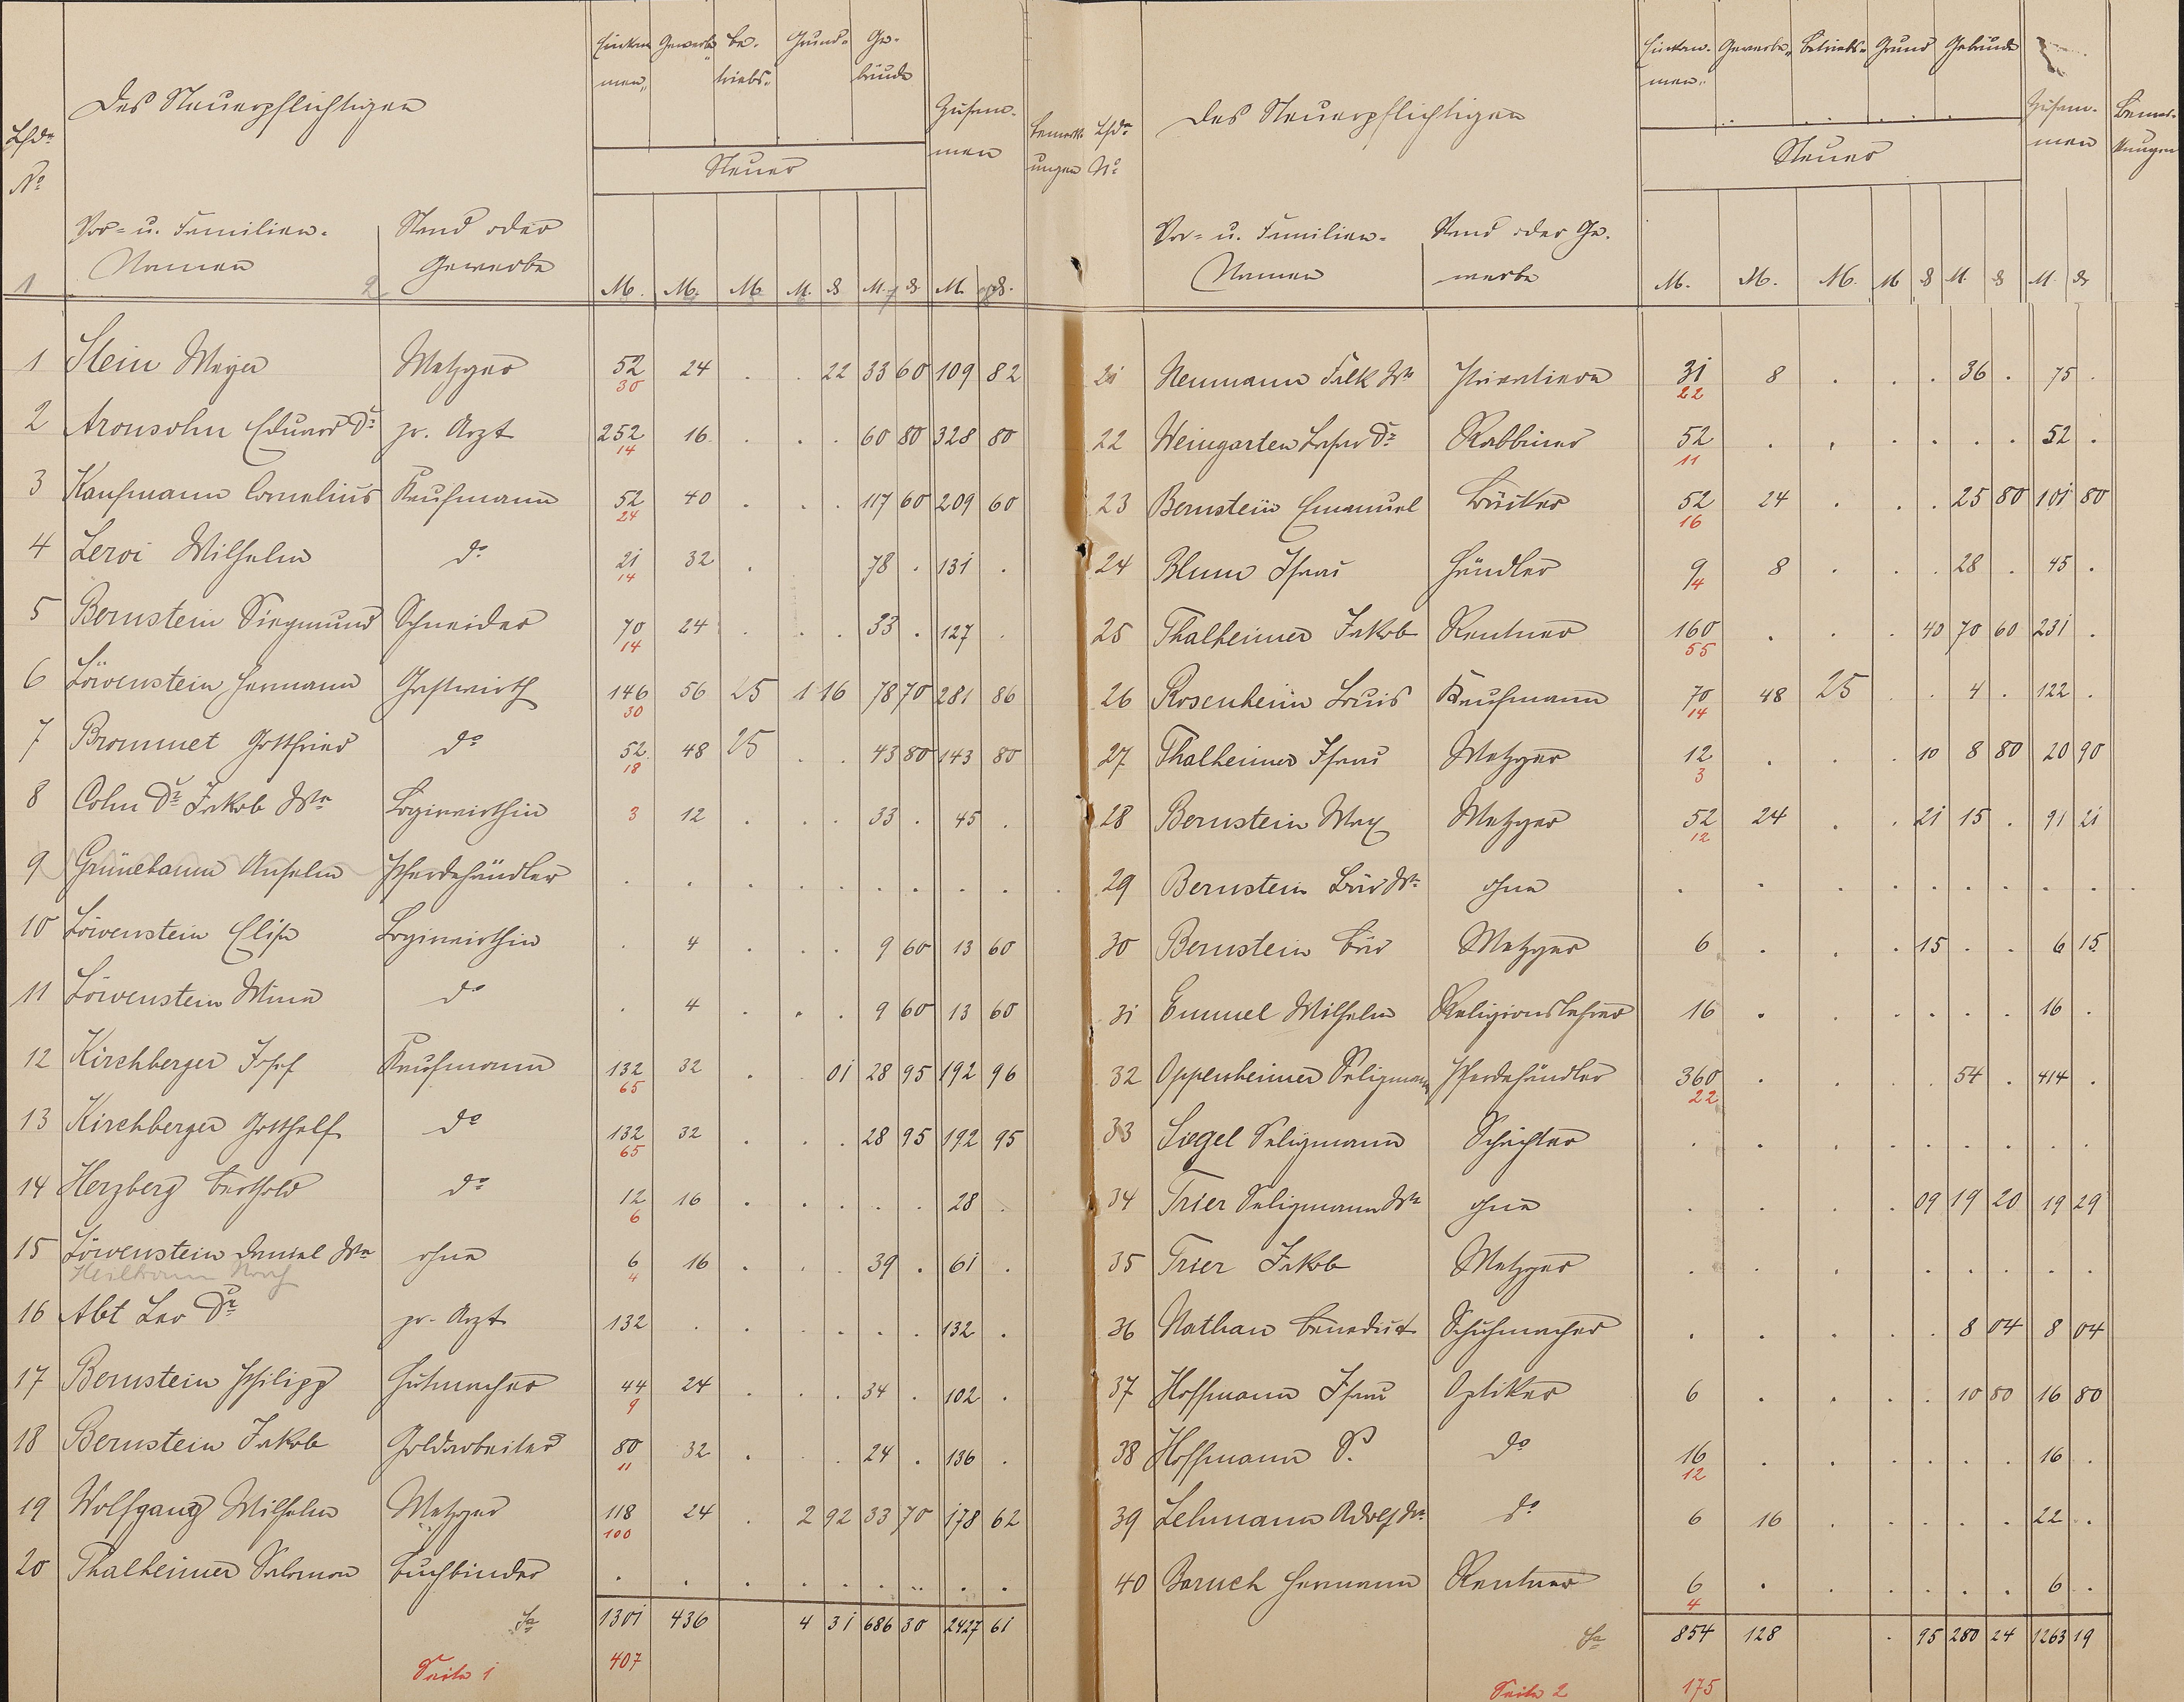 Des Steuerpflichtigen
Lfde
No
Vor- u. Familien-
Namen
Stand oder
Gewerbe
Einkom-
men-
Gewerbe-
Be-
triebs-
Grund-
Ge-
bäude
Steuer
Zusam-
men
Bemerk-
ungen
1 2
M. M. M. M. ₰ M. ₰ M. ₰.
1 Stein Meyer Metzger 52 24 . . 22 33 60 109 82
30
2 Aronsohn Eduard Dr pr. Arzt 252 16 . . . 60 80 328 80
14
3 Kaufmann Cornelius Kaufmann 52 40 . . . 117 60 209 60
24
4 Leroi Wilhelm do 21 32 . 78 . 131 .
14
5 Bernstein Siegmund Schneider 70 24 . . . 33 . 127 .
14
6 Löwenstein Hermann Gastwirth 146 56 25 1 16 78 70 281 86
30
7 Brommet Gottfried do 52 48 25 . . 43 80 143 80
18
8 Cohn Dr Jakob Wwe Logirwirthin 3 12 . . . 33 . 45 .
9 Grünebaum Anselm Pferdehändler . . . . . . . . .
10 Löwenstein Elise Logirwirthin . 4 . . . 9 60 13 60
11 Löwenstein Mina do . 4 . . . 9 60 13 60
12 Kirchberger Josef Kaufmann 132 32 . 01 28 95 192 96
65
13 Kirchberger Gotthelf do 132 32 . . . 28 95 192 95
65
14 Herzberg Berthold do 12 16 . . . . . 28 .
6
15 Löwenstein Daniel Wwe ohne 6 16 . . . 39 . 61 .
4
Heilbronn
16 Abt Leo Dr pr. Arzt 132 . . . . . . 132 .
17 Bernstein Philipp Hutmacher 44 24 . . . 34 . 102 .
9
18 Bernstein Jakob Goldarbeiter 80 32 . . . 24 . 136 .
11
19 Wolfgang Wilhelm Metzger 118 24 . 2 92 33 70 178 62
100
20 Thalheimer Salomon Buchbinder . . . . . . .. . .
Sa 1301 436 4 31 686 30 2427 61
Seite 1 407
Lfde
No
Des Steuerpflichtigen
Vor- u. Familien-
Namen
Stand oder Ge-
werbe
Einkom-
men-
Gewerbe-
Betriebs-
Grund
Gebäude
Steuer
Zusam-
men
Bemer-
kungen
M. M. M. M ₰ M. ₰ M. ₰
21 Neumann Falk Wwe Privatiere 31 8 . . . 36 . 75 .
22
22 Weingarten Lazar Dr Rabbiner 52 . . . . . . 52 .
11
23 Bernstein Emanuel Bäcker 52 24 . . . 25 80 101 80
16
24 Blum Isaac Händler 9 8 . . . 28 . 45 .
4
25 Thalheimer Jakob Rentner 160 . . . 40 70 60 231 .
55
26 Rosenheim Louis Kaufmann 70 48 25 . . 4 . 122 .
14
27 Thalheimer Isaac Metzger 12 . . . 10 8 80 20 90
3
28 Bernstein Max Metzger 52 24 . . 21 15 . 91 21
12
29 Bernstein Bär Wwe ohne . . . . . . . . .
30 Bernstein Bär Metzger 6 . . . 15 . . 6 15
31 Emmel Wilhelm Religionslehrer 16 . . . . . . 16 .
32 Oppenheimer Seligmann Pferdehändler 360 . . . . 54 . 414 .
22
33 Siegel Seligmann Schächter . . . . . . . . .
34 Trier Seligmann Wwe ohne . . . . 09 19 20 19 29
35 Trier Jakob Metzger . . . . . . . .
36 Nathan Benedict Schuhmacher . . . . . 8 04 8 04
37 Hoffmann Isaac Optiker 6 . . . . 10 80 16 80
38 Hoffmann S. do 16 . . . . . . 16 .
12
39 Lehmann Adolf Dr. do 6 16 . . . . . 22 .
40 Baruch Hermann Rentner 6 . . . . . . 6 .
4
Sa 854 128 . 95 280 24 1263 19
Seite 2 175